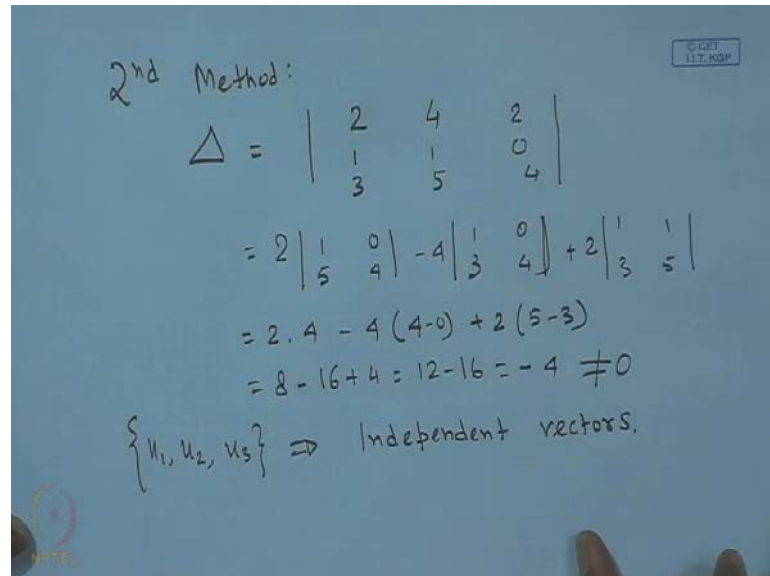 © CET
I.I.T. KGP
2nd Method:
Δ = | 2 4 2 |
| 1 1 0 |
| 3 5 4 |
= 2 | 1 0 | - 4 | 1 0 | + 2 | 1 1 |
| 5 4 | | 3 4 | | 3 5 |
= 2.4 - 4 (4-0) + 2 (5-3)
= 8 - 16 + 4 = 12 - 16 = - 4 ≠ 0
{u₁, u₂, u₃} ⇒ Independent vectors.
NPTEL